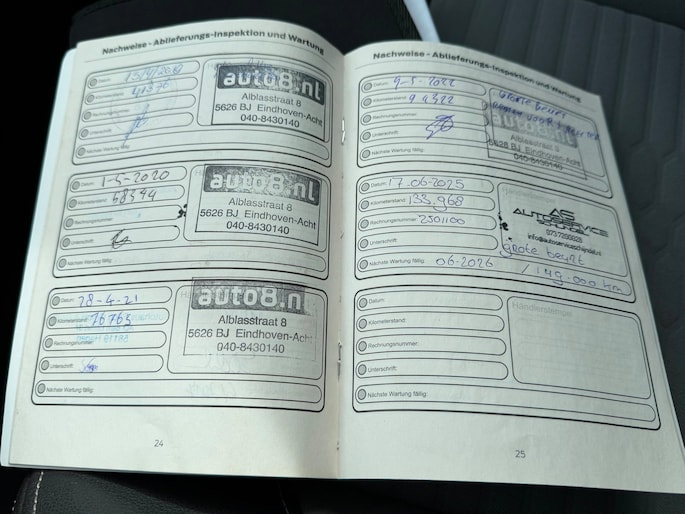 Nachweise - Ablieferungs-Inspektion und Wartung
Datum:
Kilometerstand:
Rechnungsnummer:
Unterschrift:
Nächste Wartung fällig:
auto8.nl
Alblasstraat 8
5626 BJ Eindhoven-Acht
040-8430140
Datum: 1-5-2020
Kilometerstand: 68394
Rechnungsnummer:
Unterschrift:
Nächste Wartung fällig:
auto8.nl
Alblasstraat 8
5626 BJ Eindhoven-Acht
040-8430140
Datum: 28-4-21
Kilometerstand: 76765
Rechnungsnummer:
Unterschrift:
Nächste Wartung fällig:
auto8.n
Alblasstraat 8
5626 BJ Eindhoven-Acht
040-8430140
24
Nachweise - Ablieferungs-Inspektion und Wartung
Datum: 9-5-2022
Kilometerstand: 99322
Rechnungsnummer:
Unterschrift:
Nächste Wartung fällig:
Grote beurt
auto8.nl
Alblasstraat 8
5626 BJ Eindhoven-Acht
040-8430140
Datum: 17-06-2025
Kilometerstand: 133,968
Rechnungsnummer: 2501100
Unterschrift:
Nächste Wartung fällig: 06-2026 / 149.000 km
AG
AUTOSERVICE
SCHIJNDEL
073 7200028
info@autoserviceschijndel.nl
grote beurt
Datum:
Kilometerstand:
Rechnungsnummer:
Unterschrift:
Nächste Wartung fällig:
Händlerstempel
25